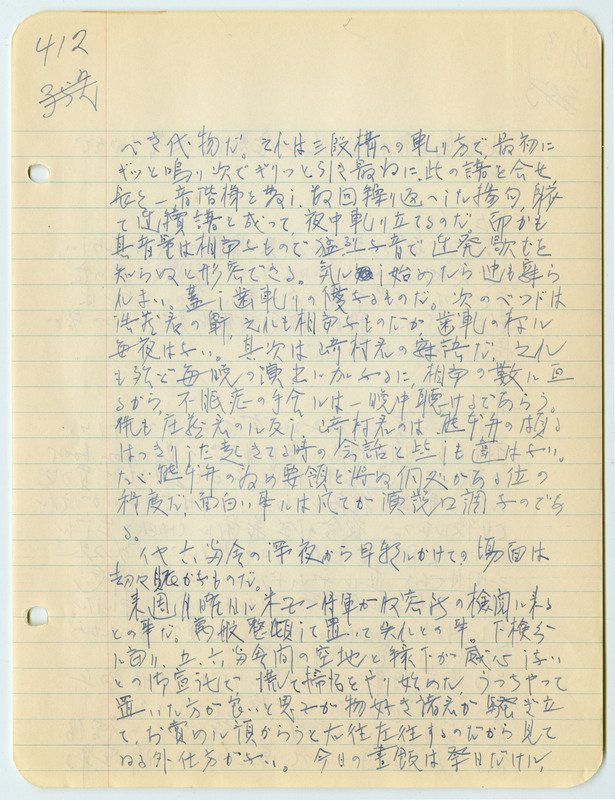 412
べき代物だ。それは三段構への軋り方で、最初に
ギッと鳴り次でギリっと引き最後に、此の諸を会せ
長を一音階梯を奏し、数回繰り返へした揚句、
て連續 と成って、夜中軋り立てるのだ。而かも
其音量は相当なもので猛烈な音で連発 を
知らぬと形容できる。気にし始めたら迚も寝ら
れまい。蓋し歯軋りの優なるものだ。次のベッドは
君の鼾、之れも相当なものだが歯軋の様に
毎夜はない。其次は崎村君の寝語だ、之れ
も殆ど毎晩の演出に加ふるに、相当の数に亘
るから、不眠症の手合には一晩中聴けるであらう。
然も庄 君のに反し崎村君のは、熊本弁の頗る
はっきりした起きてる時の会話と些しも違はない。
たゞ熊本弁の為め要領を得ぬ個処がある位の
程度だ、面白い事には凡てが演説口調なのであ
る。
イヤ六号舎の深夜から早朝にかけての場面は
却々賑かなものだ。
来週月曜日に米モー将軍が収容所の檢閲に来る
との事だ。萬般整頓して置いて呉れとの事。下検分
に廻り、五、六号舎間の空地と縁下が感心しない
との御宣託で慌て掃除をやり始めた、うっちやって
置いた方が良いと思ふが物好き諸君が騒ぎ立
て、お賞めに預からうと右往左往するのだから見て
ゐる外仕方がない。 今日の晝飯は祭日だけに、